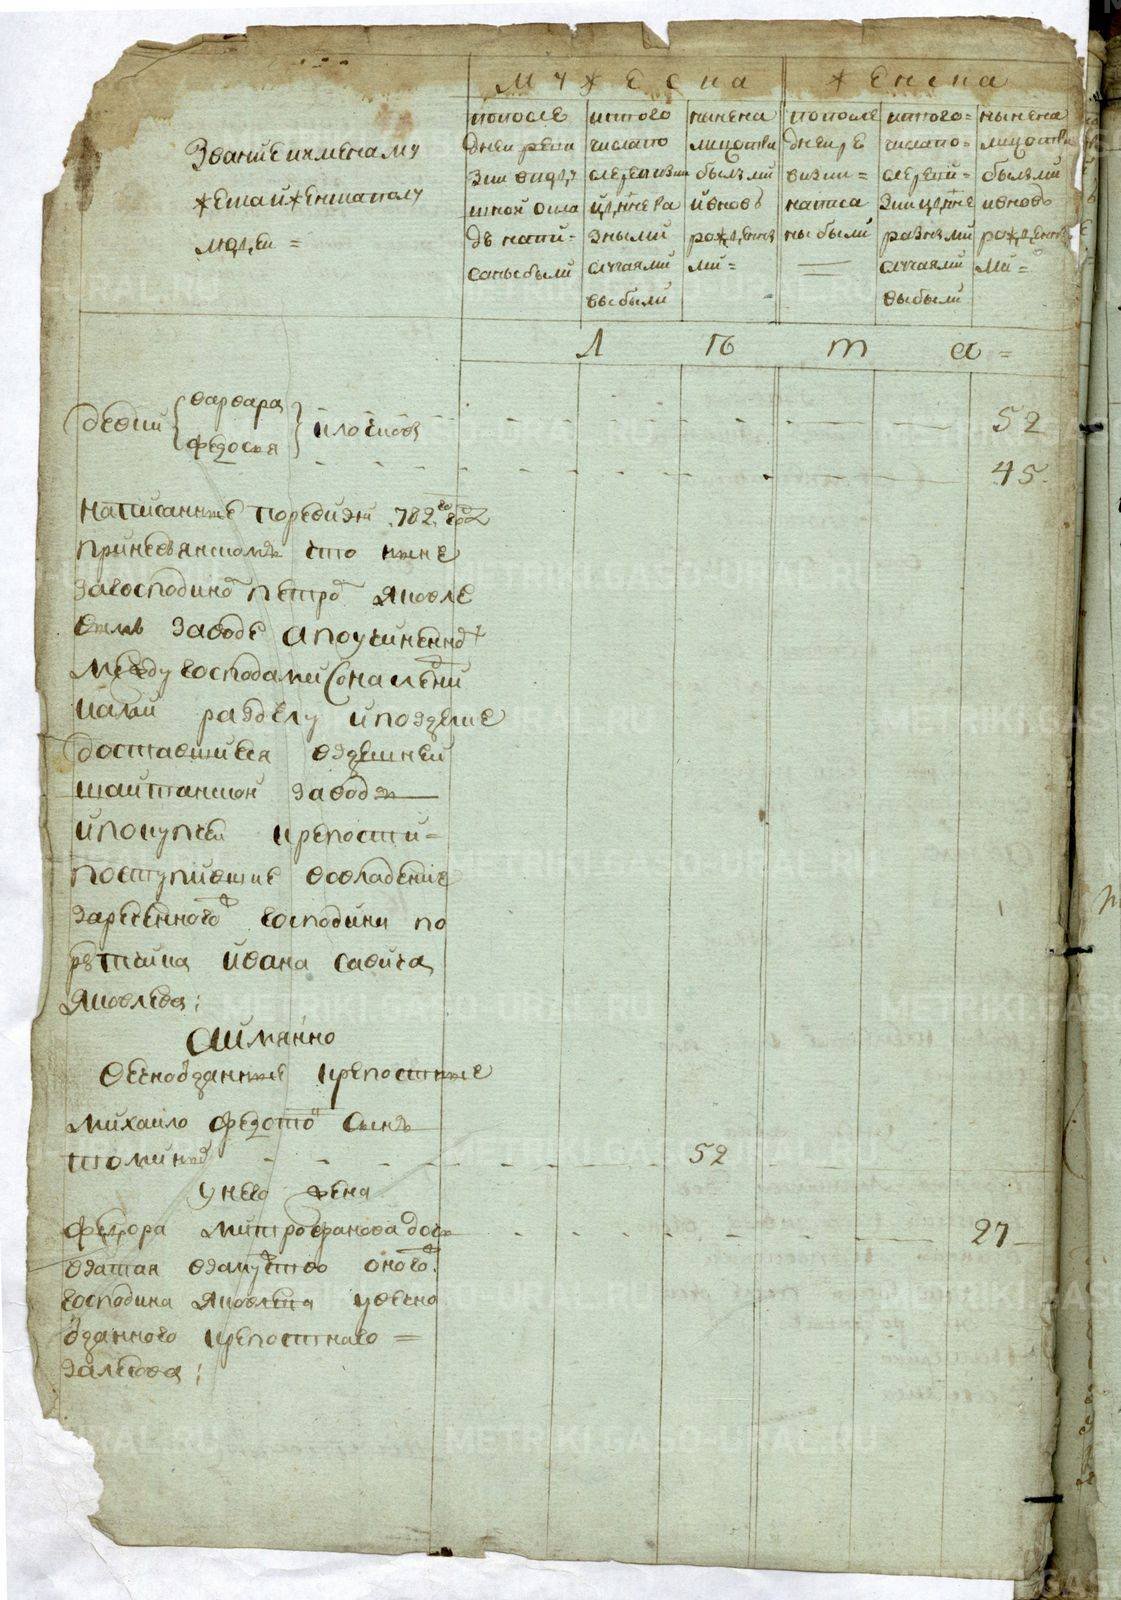 мужеска женска
Звание и имена му
жеска и женска полу
люд,еи =
по после
дней реви
зии в под,у
шной окла
дъ напи-
саны были
из того
числа по
сле ревизии
разными
случаями
выбыли
ныне на
лицо с тъми
был,ыми
и вновь
рожд,енны
ми =
по после
дней ре
визии =
написа
ны были
из того =
числа по-
сле реви-
зии
разными
случаями
выбыли
ныне на
лицо с
былыми
и вновь
рожд,енны
ми =
Л ѣ т а =
девки варвара
федосья 52
45
написанные по ревизии 782го году
при невьянском что ныне
за господином петром яковле
вым заводе а по учиненному
между господами
раздѣлу и позд,еже
доставшиеся вздешней
шайтанской завод
и по купчей крепости =
поступившие во владение
зареченного господина по
рутчика ивана савича
яковлева;
а имянно
вечноозданные крепостные
михайло федотов сынъ
томин 52
у него жена
федора митрофанова доч 27
взатая взамужство оного
господина яковлева у вечно
озданного крепостнаго =